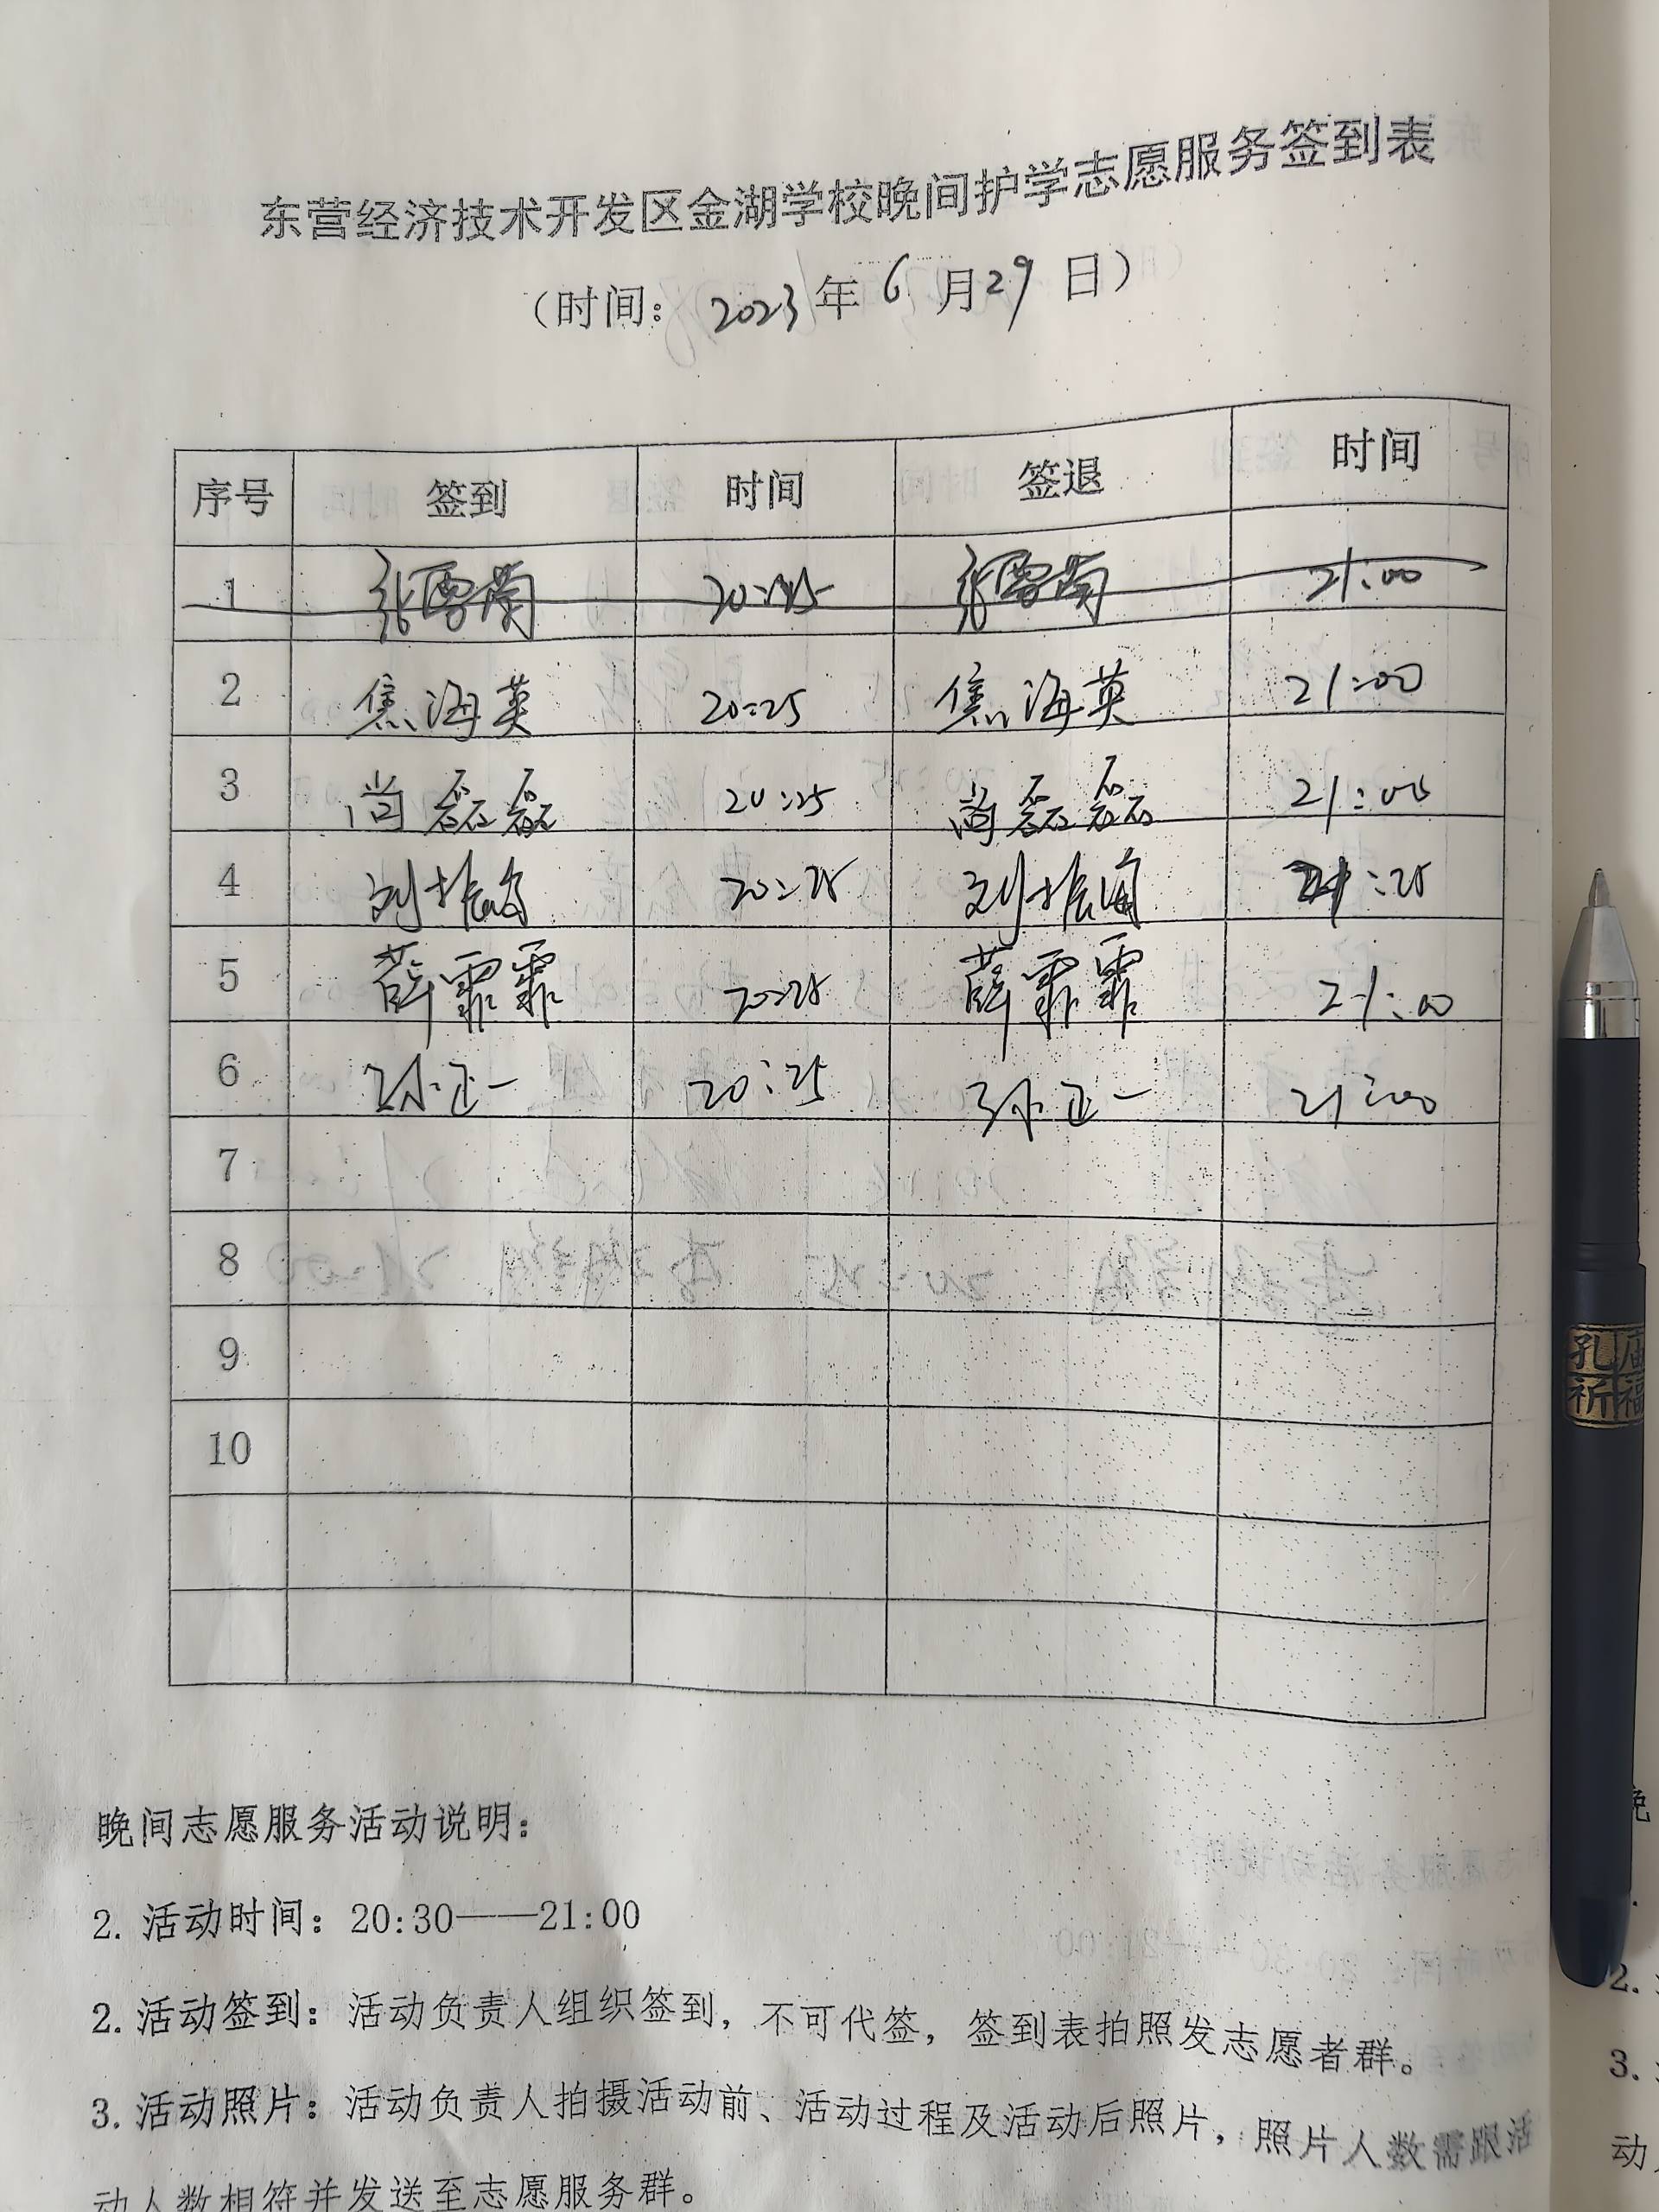 东营经济技术开发区金湖学校晚间护学志愿服务签到表
（时间：2023年6月29日）
序号 签到 时间 签退 时间
1 张雪 张雪 21:00
2 焦海英 20:25 焦海英 21:00
3 尚磊磊 20:25 尚磊磊 21:00
4 刘振海 20:25 刘振海 21:25
5 薛霏霏 20:25 薛霏霏 21:00
6 孙正一 20:25 孙正一 21:00
7
8
9
10
晚间志愿服务活动说明：
2. 活动时间：20:30——21:00
2. 活动签到：活动负责人组织签到，不可代签，签到表拍照发志愿者群。
3. 活动照片：活动负责人拍摄活动前、活动过程及活动后照片，照片人数需跟活
动人数相符并发送至志愿服务群。
孔庙
祈福
晚
2.
3.
动